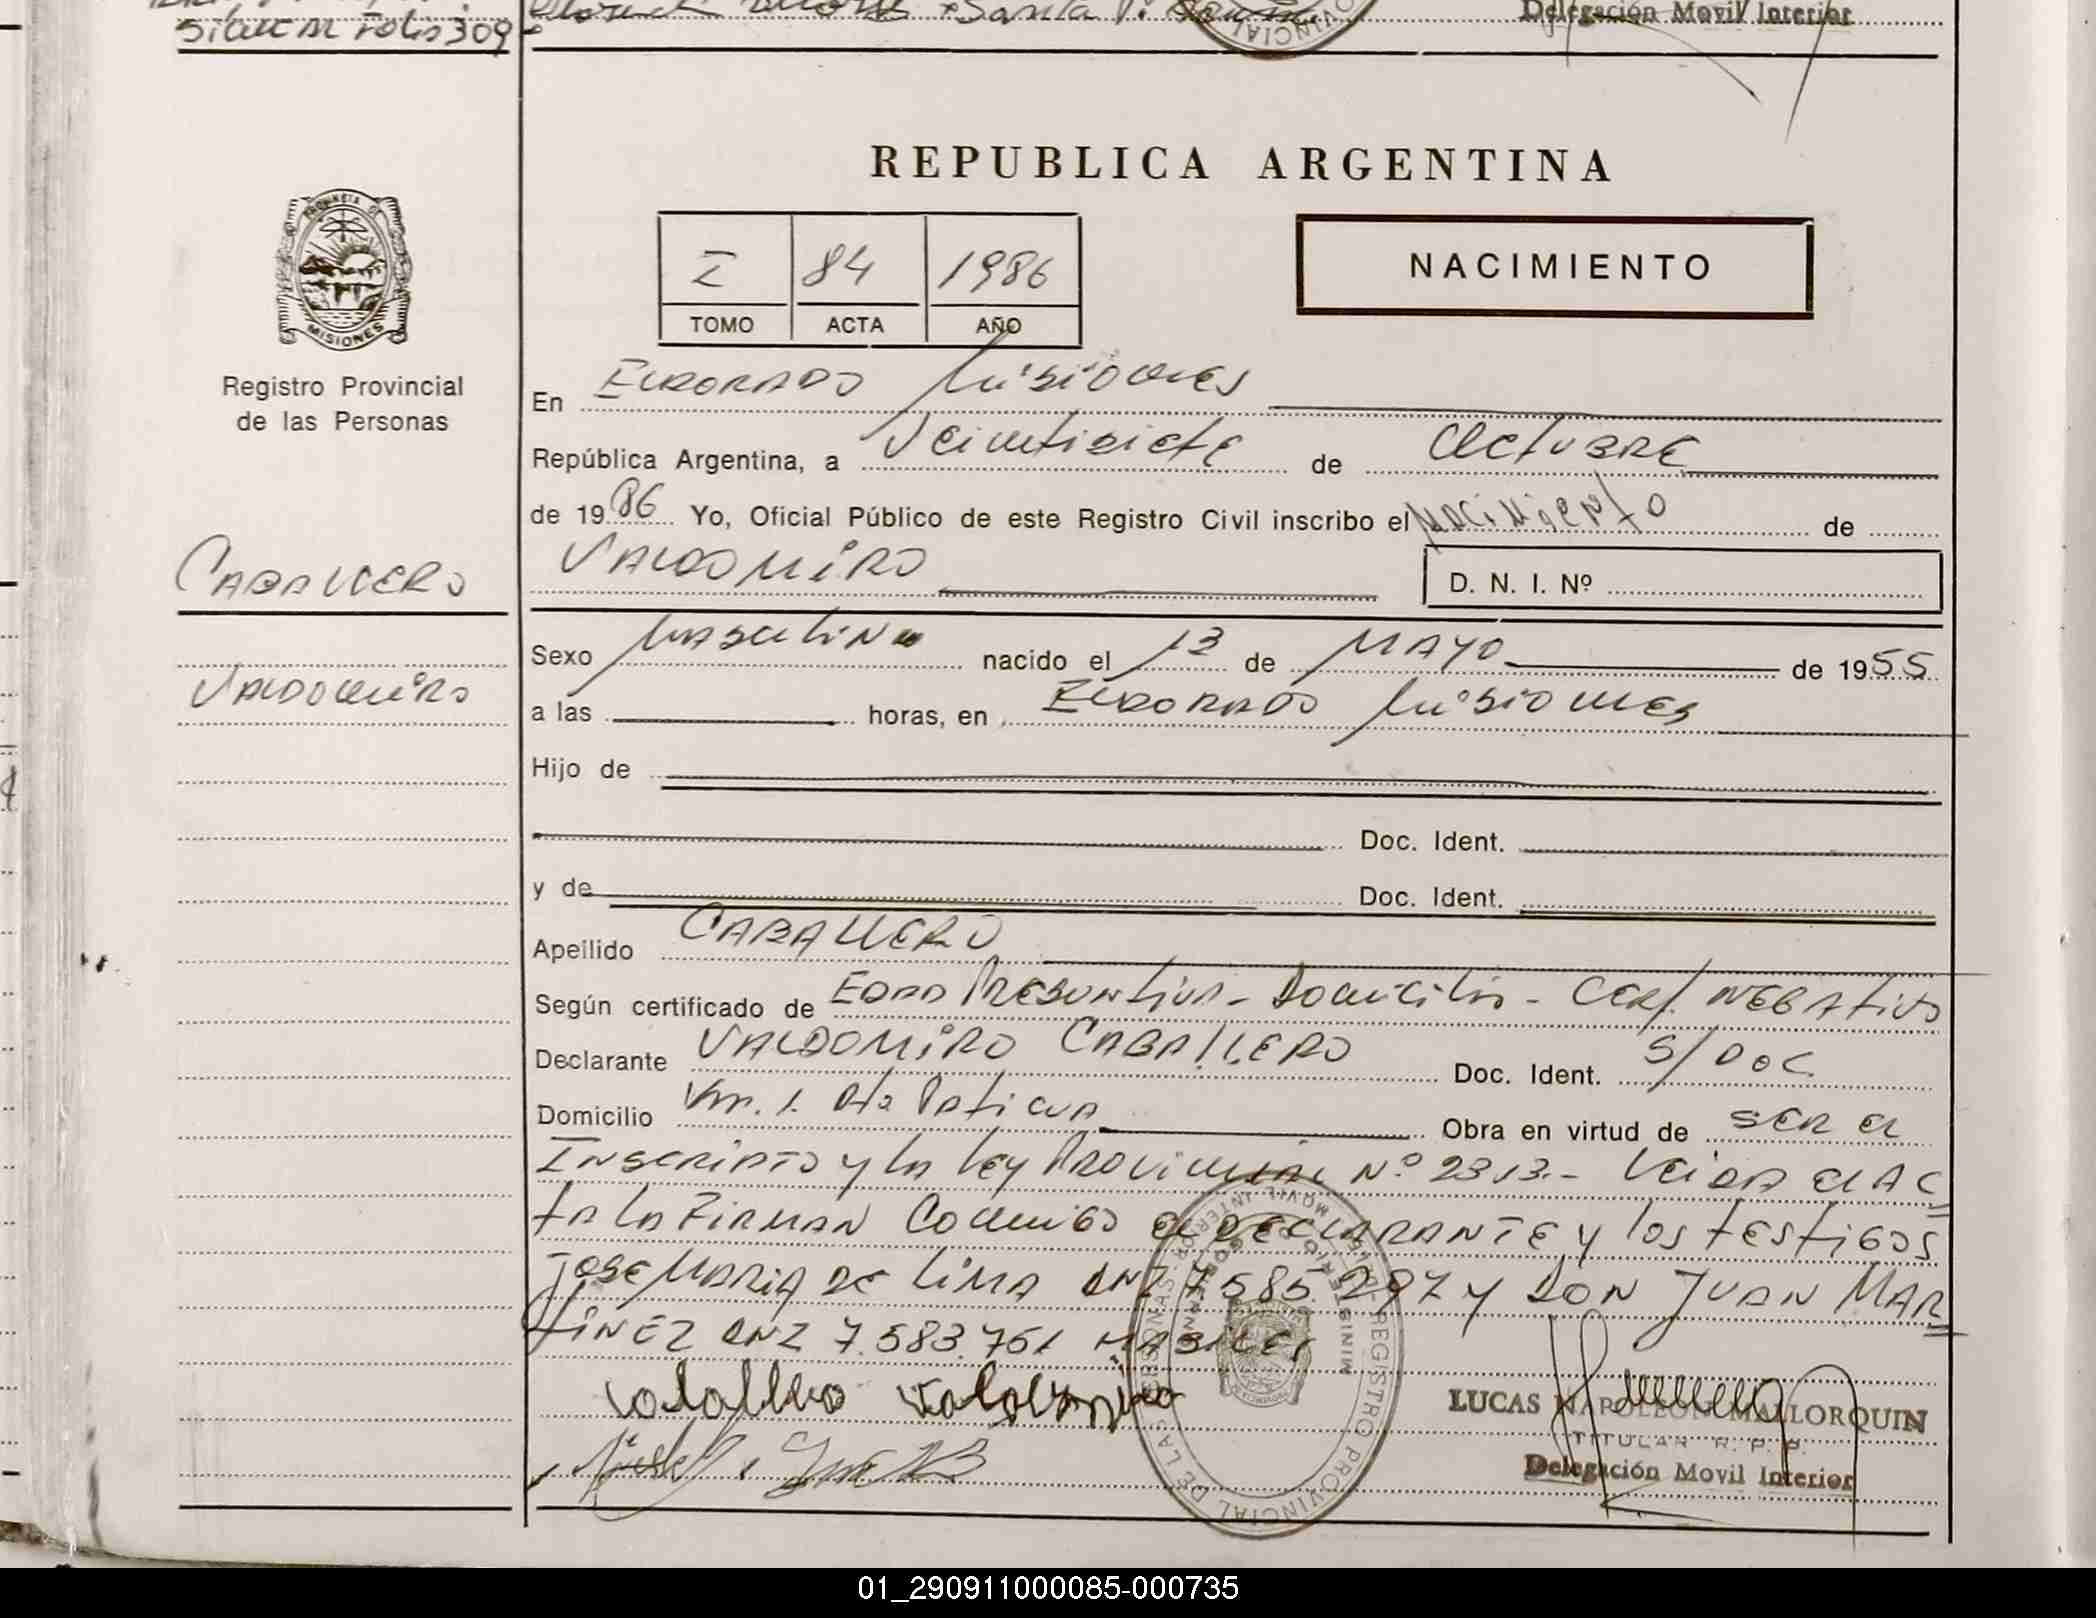 Folio 309
Delegación Movil Interior
REPUBLICA ARGENTINA
PROVINCIA DE
MISIONES
Registro Provincial
de las Personas
I 84 1986
TOMO ACTA AÑO
NACIMIENTO
En ELDORADO Misiones
República Argentina, a Veintisiete de Octubre
de 1986 Yo, Oficial Público de este Registro Civil inscribo el Nacimiento de
VALDOMIRO D. N. I. Nº
CABALLERO
VALDOMIRO
Sexo Masculino nacido el 13 de MAYO de 1955
a las horas, en ELDORADO Misiones
Hijo de
Doc. Ident.
y de Doc. Ident.
Apellido CABALLERO
Según certificado de Edad Presuntiva - Domicilio - Cert. Negativo
Declarante VALDOMIRO CABALLERO Doc. Ident. S/Doc
Domicilio Km. 1. Obra en virtud de ser el
Inscripto y la Ley Provincial Nº 2313.- Leida el Ac
ta la Firman Conmigo el DECLARANTE y los testigos
Jose Maria de Lima DNI 7.585.297 y Don Juan MAR
TINEZ DNI 7.583.751 Habiles
LUCAS NAPOLEON MALLORQUIN
TITULAR R. P. P.
Delegación Movil Interior
REGISTRO PROVINCIAL DE LAS PERSONAS
01_290911000085-000735